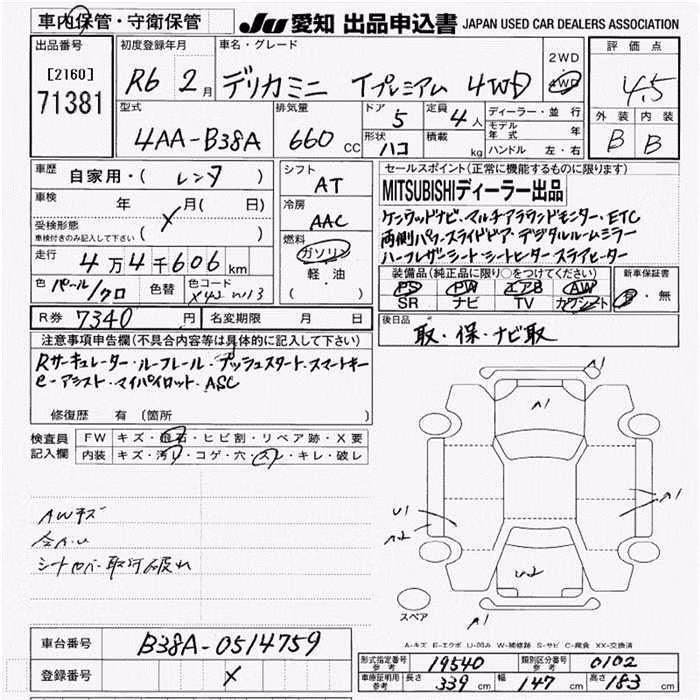 車内保管・守衛保管
JU 愛知 出品申込書 JAPAN USED CAR DEALERS ASSOCIATION
出品番号
[2160]
71381
初度登録年月
R6 2月
車名・グレード
デリカミニ Tプレミアム 4WD
2WD
4WD
評価点
4.5
外装 内装
B B
型式
4AA-B38A
排気量
660 CC
ドア
5
定員
4人
形状
ハコ
積載
kg
ディーラー・並行
モデル年式 年
ハンドル 左・右
車歴
自家用・( レンタ )
車検
年 月( 日)
受検形態
車検付きのみ記入して下さい ( X )
走行
4万4千606km
色 パール/クロ
色替
色コード
X42 W13
シフト
AT
冷房
AAC
燃料
ガソリン
軽・油
( )
セールスポイント(正常に機能するものに限ります)
MITSUBISHIディーラー出品
ケンウッドナビ・マルチアラウンドモニター・ETC
両側パワースライドドア・デジタルルームミラー
ハーフレザーシート・シートヒーター ステアヒーター
装備品(純正品に限り○をつけてください)
PS PW エアB AW
SR ナビ TV カワシート
新車保証書
有・無
R券 7340円
名変期限 月 日
後日品
取・保・ナビ取
注意事項申告欄(不具合内容等は具体的に記入して下さい)
Rサーキュレーター・ルーフレール・プッシュスタート・スマートキー
e-アシスト・マイパイロット・ASC
修復歴 有(箇所 )
検査員記入欄
FW キズ・飛石・ヒビ割・リペア跡・X要
内装 キズ・汚レ・コゲ・穴・スレ・キレ・破レ
AWキズ
シートカバー取付破れ
A1
A1
U1
A2
A1
U2
A1
スペア
A-キズ E-エクボ U-凹み W-補修跡 S-サビ C-腐食 XX-交換済
車台番号 B38A-0514759
登録番号 X
形式指定番号 参考 19540
類別区分番号 参考 0102
車庫証明用 参考 長さ 339 cm 幅 147 cm 高さ 183 cm